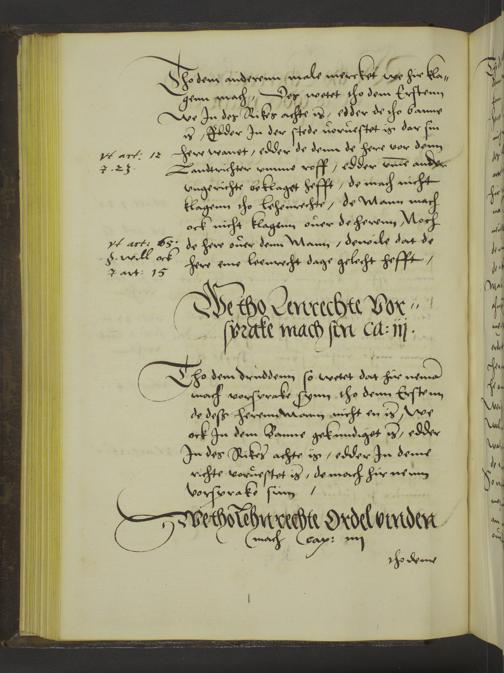 Tho dem anderenn male mercket we hir kla„
genn mach„ Des wetet tho dem Ersten
We In des Rikes achte is, edder de tho banne
is, Edder In der stede vorvestet is dar sin
here wanet, edder de denn de here vor dem
Landrichter umme roff, edder umme ander
ungerichte beklaget hefft, de mach nicht
klagenn tho lehenrechte, de Mann mach
ock nicht klagenn over de herenn, Noch
de here over dem Mann, dewile dat de
here eme leenrecht dage gelecht hefft,
vt art: 12
7. 23.
vt art: 65.
ock
7 art: 15
We tho Lenrechte Vor„
sprake mach sin ca: iij.
Tho dem drudden so wetet dat hir nema
mach vorsprake synn tho dem Ersten
de dess heren Mann nicht en is, We
ock In dem Banne gekundiget is, edder
In des Rikes achte is, edder In deme
richte vorvestet is, de mach hir nenn
vorsprake sinn /
We tho Lehnrechte Ordel vinden
mach Cap: iiij
tho deme